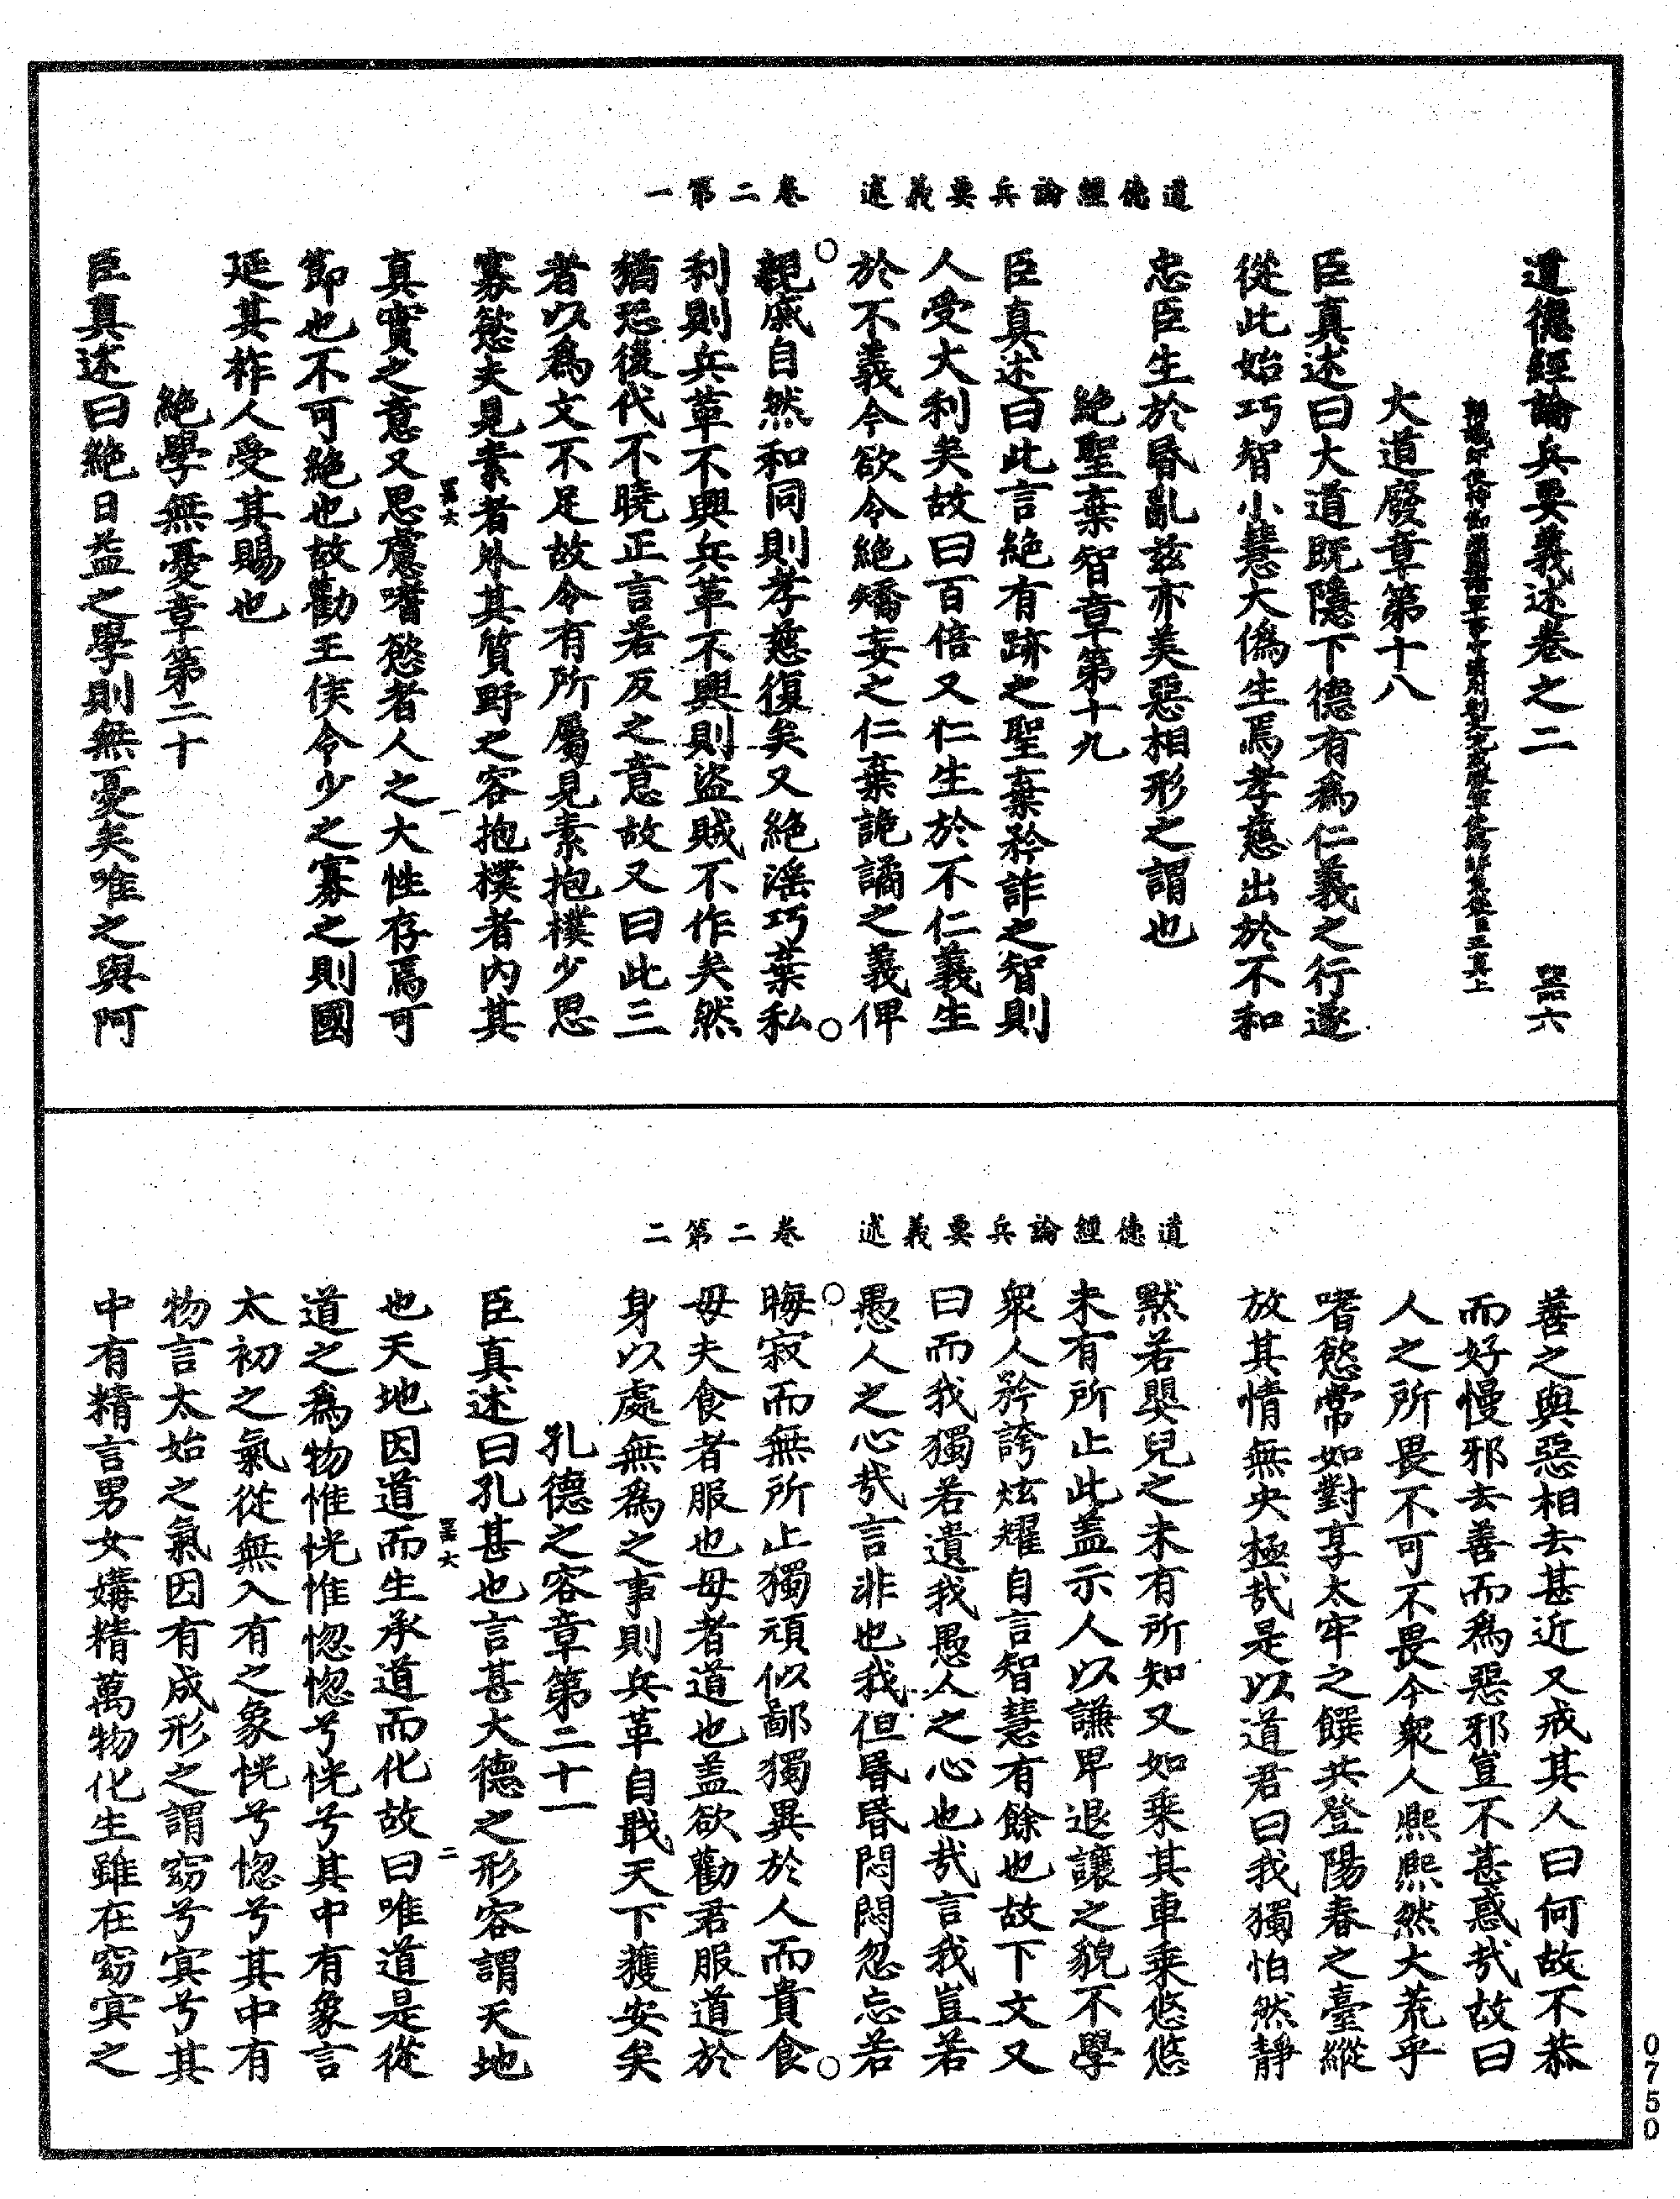 道德經論兵要義述卷二第一
道德經論兵要義述卷之二 器六
大道廢章第十八
臣真述曰大道既隱下德有爲仁義之行遂
從此始巧智小慧大僞生焉孝慈出於不和
忠臣生於昬亂兹亦美惡相形之謂也
絕聖棄智章第十九
臣真述曰此言絕有跡之聖棄矜詐之智則
人受大利矣故曰百倍又仁生於不仁義生
於不義今欲令絕矯妄之仁棄詭譎之義俾
親戚自然和同則孝慈復矣又絕滛巧棄私
利則兵革不興兵革不興則盜賊不作矣然
猶恐後代不曉正言若反之意故又曰此三
者以爲文不足故令有所屬見素抱樸少思
寡慾夫見素者外其質野之容抱樸者内其
器六 一
真實之意又思慮嗜慾者人之大性存焉可
節也不可絕也故勸王侯令少之寡之則國
延其祚人受其賜也
絕學無憂章第二十
臣真述曰絕日益之學則無憂矣唯之與阿
道德經論兵要義述卷二第二
善之與惡相去甚近又戒其人曰何故不恭
而好慢邪去善而爲惡邪豈不甚惑哉故曰
人之所畏不可不畏今衆人熙熙然大荒乎
嗜慾常如對享太牢之饌共登陽春之臺縱
放其情無央極哉是以道君曰我獨怕然靜
默若嬰兒之未有所知又如乘其車乘悠悠
未有所止此盖示人以謙卑退讓之貌不學
衆人矜誇炫耀自言智慧有餘也故下文又
曰而我獨若遺我愚人之心也哉言我豈若
愚人之心哉言非也我但昬昬悶悶忽忘若
晦寂而無所止獨頑似鄙獨異於人而貴食
母夫食者服也母者道也盖欲勸君服道於
身以處無爲之事則兵革自戢天下獲安矣
孔德之容章第二十一
臣真述曰孔甚也言甚大德之形容謂天地
器六 二
也天地因道而生承道而化故曰唯道是從
道之爲物惟恍惟惚惚兮恍兮其中有象言
太初之氣從無入有之象恍兮惚兮其中有
物言太始之氣因有成形之謂窈兮宾兮其
中有精言男女媾精萬物化生雖在窈宾之
0750